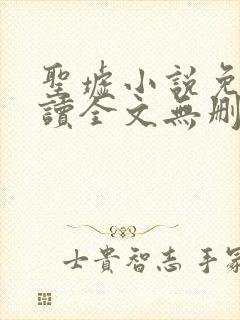 聖墟小說免
讀全文無刪
士貴智志手冢